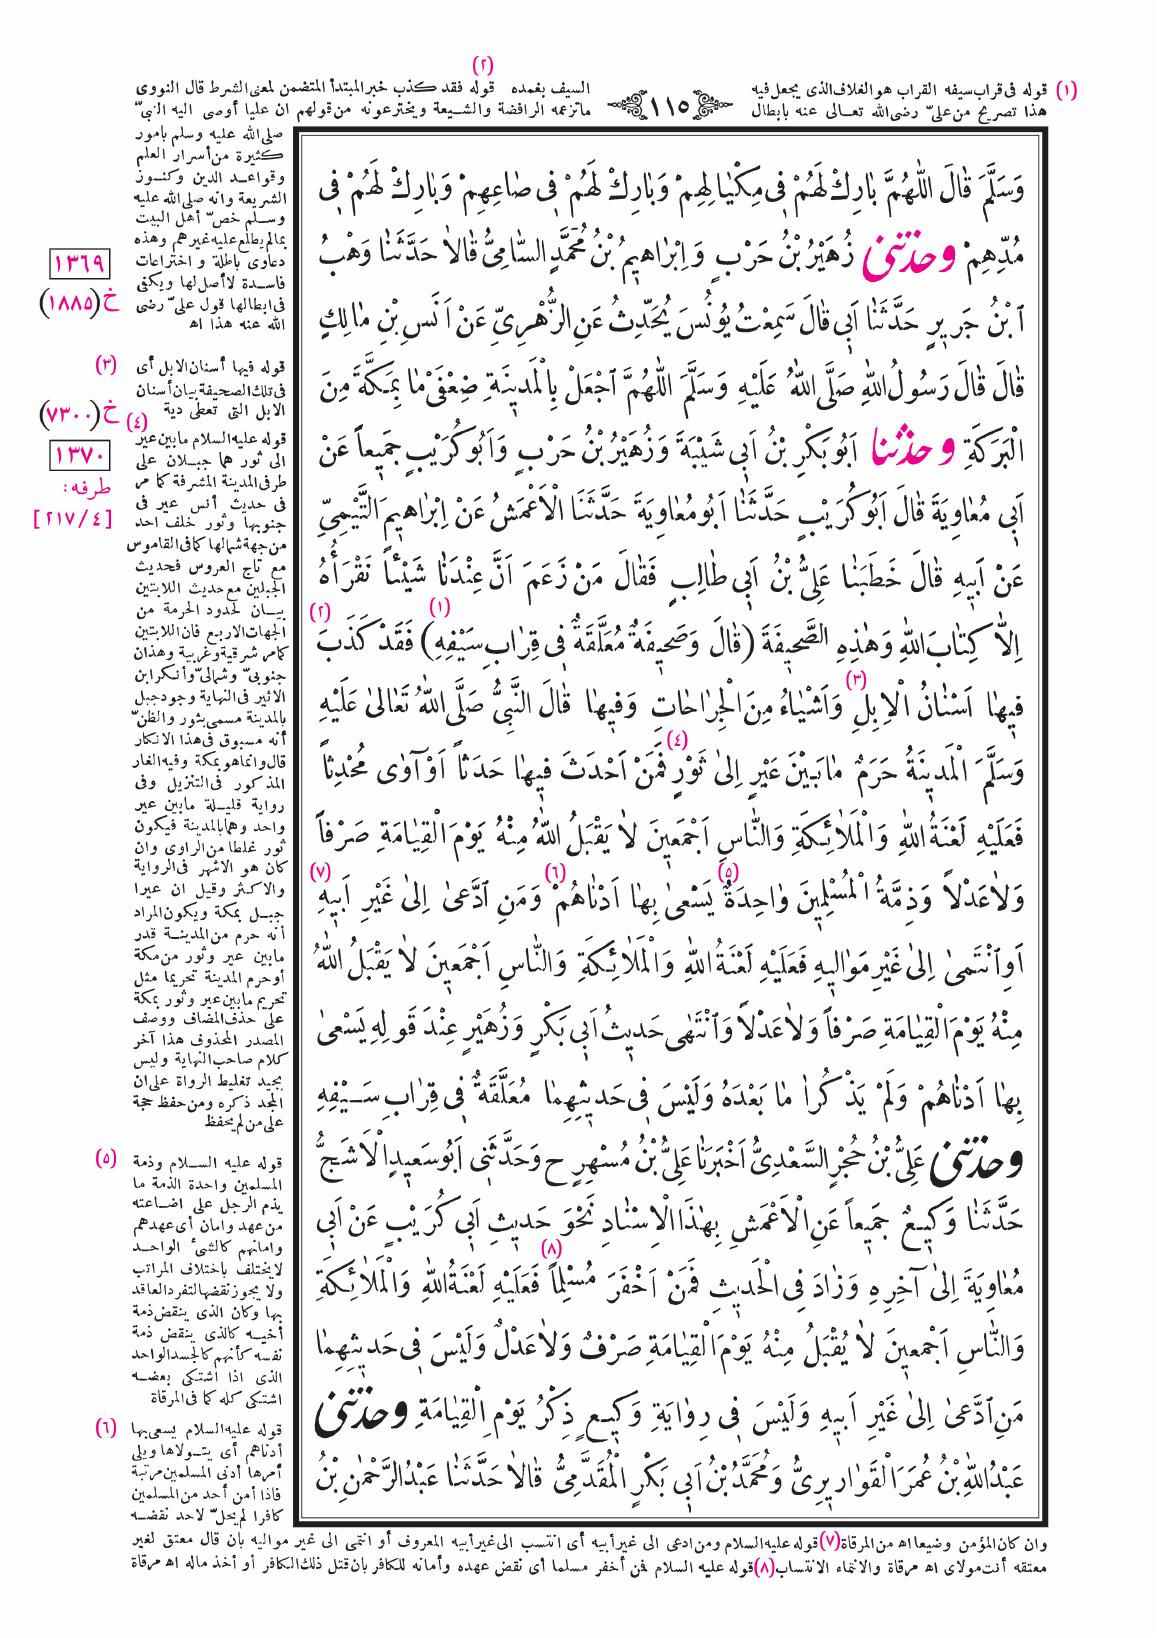 (١) قوله فى قراب سيفه القراب هو الغلاف الذى يجعل فيه
السيف بغمده (٢) قوله فقد كذب خبر المبتدأ المتضمن لمعنى الشرط قال النووى
هذا تصريح من علىّ رضى الله تعـالى عنه بابطال
ماتزعمه الرافضة والشـيعة ويخترعونه من قولهم ان عليا أوصى اليه النبىّ
١١٥
صلى الله عليه وسلم بامور
كثيرة من أسرار العلم
وقواعـد الدين وكنـوز
الشريعة وانه صلى الله عليه
وسـلم خصّ أهل البيت
بمالم يطلع عليه غيرهم وهذه
دعاوى باطلة و اختراعات
فاسـدة لاأصل لها ويكفى
فى ابطالها قول علىّ رضى
الله عنه هذا اه
(٣) قوله فيها أسنان الابل أى
فى تلك الصحيفة بيان أسنان
الابل التى تعطى دية
(٤) قوله عليه السلام مابين عير
الى ثور هما جبـلان على
طرفى المدينة المشرفة كما مر
فى حديث أنس عير فى
جنوبها وثور خلف احد
من جهة شمالها كما فى القاموس
مع تاج العروس فحديث
الجبلين مع حديث اللابتين
بيـان لحدود الحرمة من
الجهات الاربع فان اللابتين
كما مر شرقية وغربية وهذان
جنوبىّ وشمالىّ وأنكر ابن
الاثير فى النهاية وجود جبل
بالمدينة مسمى بثور والظنّ
أنه مسبوق فى هذا الانكار
قال وانما هو بمكة وفيه الغار
المذكور فى التنزيل وفى
رواية قليـلة مابين عير
واحد وهما بالمدينة فيكون
ثور غلطا من الراوى وان
كان هو الاشهر فى الرواية
والاكثر وقيل ان عيرا
جبـل بمكة ويكون المراد
أنه حرم من المدينـة قدر
مابين عير وثور من مكة
أوحرم المدينة تحريما مثل
تحريم مابين عير وثور بمكة
على حذف المضاف ووصف
المصدر المحذوف هذا آخر
كلام صاحب النهاية وليس
بجيد تغليط الرواة على ان
المجد ذكره ومن حفظ حجة
على من لم يحفظ
(٥) قوله عليه السـلام وذمة
المسلمين واحدة الذمة ما
يذم الرجل على اضـاعته
من عهد وامان أى عهدهم
وامانهم كالشئ الواحـد
لايختلف باختلاف المراتب
ولا يجوز نقضها لتفرد العاقد
بها وكان الذى ينقض ذمة
أخيـه كالذى ينقض ذمة
نفسه كأنهم كالجسد الواحد
الذى اذا اشتكى بعضـه
اشتكى كله كما فى المرقاة
(٦) قوله عليه السلام يسعى بها
أدناهم أى يتـولاها ويلى
أمرها أدنى المسلمين مرتبة
فاذا أمن أحد من المسلمين
كافرا لم يحلّ لاحد نقضـه
١٣٦٩
خ (١٨٨٥)
خ (٧٣٠٠)
١٣٧٠
طرفه:
[٢١٧/٤]
وَسَلَّمَ قَالَ اللّٰهُمَّ بَارِكْ لَهُمْ فِى مِكْيَالِهِمْ وَبَارِكْ لَهُمْ فِى صَاعِهِمْ وَبَارِكْ لَهُمْ فِى
مُدِّهِمْ وحدثنى زُهَيْرُ بْنُ حَرْبٍ وَاِبْرَاهِيمُ بْنُ مُحَمَّدٍ السَّامِىُّ قَالَا حَدَّثَنَا وَهْبُ
ابْنُ جَرِيرٍ حَدَّثَنَا اَبِى قَالَ سَمِعْتُ يُونُسَ يُحَدِّثُ عَنِ الزُّهْرِىِّ عَنْ اَنَسِ بْنِ مَالِكٍ
قَالَ قَالَ رَسُولُ اللّٰهِ صَلَّى اللّٰهُ عَلَيْهِ وَسَلَّمَ اللّٰهُمَّ اجْعَلْ بِالْمَدِينَةِ ضِعْفَىْ مَا بِمَكَّةَ مِنَ
الْبَرَكَةِ وحدثنا اَبُو بَكْرِ بْنُ اَبِى شَيْبَةَ وَزُهَيْرُ بْنُ حَرْبٍ وَاَبُو كُرَيْبٍ جَمِيعاً عَنْ
اَبِى مُعَاوِيَةَ قَالَ اَبُو كُرَيْبٍ حَدَّثَنَا اَبُو مُعَاوِيَةَ حَدَّثَنَا الْاَعْمَشُ عَنْ اِبْرَاهِيمَ التَّيْمِىِّ
عَنْ اَبِيهِ قَالَ خَطَبَنَا عَلِىُّ بْنُ اَبِى طَالِبٍ فَقَالَ مَنْ زَعَمَ اَنَّ عِنْدَنَا شَيْئاً نَقْرَأُهُ
اِلَّا كِتَابَ اللّٰهِ وَهٰذِهِ الصَّحِيفَةَ (قَالَ وَصَحِيفَةٌ مُعَلَّقَةٌ فِى قِرَابِ سَيْفِهِ) (١) فَقَدْ كَذَبَ (٢)
فِيهَا اَسْنَانُ الْاِبِلِ (٣) وَاَشْيَاءُ مِنَ الْجِرَاحَاتِ وَفِيهَا قَالَ النَّبِىُّ صَلَّى اللّٰهُ تَعَالٰى عَلَيْهِ
وَسَلَّمَ الْمَدِينَةُ حَرَمٌ مَا بَيْنَ عَيْرٍ اِلٰى ثَوْرٍ (٤) فَمَنْ اَحْدَثَ فِيهَا حَدَثاً اَوْ آوٰى مُحْدِثاً
فَعَلَيْهِ لَعْنَةُ اللّٰهِ وَالْمَلَائِكَةِ وَالنَّاسِ اَجْمَعِينَ لَا يَقْبَلُ اللّٰهُ مِنْهُ يَوْمَ الْقِيَامَةِ صَرْفاً
وَلَا عَدْلاً وَذِمَّةُ الْمُسْلِمِينَ وَاحِدَةٌ (٥) يَسْعٰى بِهَا اَدْنَاهُمْ (٦) وَمَنِ ادَّعٰى اِلٰى غَيْرِ اَبِيهِ (٧)
اَوِ انْتَمٰى اِلٰى غَيْرِ مَوَالِيهِ فَعَلَيْهِ لَعْنَةُ اللّٰهِ وَالْمَلَائِكَةِ وَالنَّاسِ اَجْمَعِينَ لَا يَقْبَلُ اللّٰهُ
مِنْهُ يَوْمَ الْقِيَامَةِ صَرْفاً وَلَا عَدْلاً وَانْتَهٰى حَدِيثُ اَبِى بَكْرٍ وَزُهَيْرٍ عِنْدَ قَوْلِهِ يَسْعٰى
بِهَا اَدْنَاهُمْ وَلَمْ يَذْكُرَا مَا بَعْدَهُ وَلَيْسَ فِى حَدِيثِهِمَا مُعَلَّقَةٌ فِى قِرَابِ سَـيْفِهِ
وحدثنى عَلِىُّ بْنُ حُجْرٍ السَّعْدِىُّ اَخْبَرَنَا عَلِىُّ بْنُ مُسْهِرٍ ح وَحَدَّثَنِى اَبُو سَعِيدٍ الْاَشَجُّ
حَدَّثَنَا وَكِيعٌ جَمِيعاً عَنِ الْاَعْمَشِ بِهٰذَا الْاِسْنَادِ نَحْوَ حَدِيثِ اَبِى كُرَيْبٍ عَنْ اَبِى
مُعَاوِيَةَ اِلٰى آخِرِهِ وَزَادَ فِى الْحَدِيثِ فَمَنْ اَخْفَرَ مُسْلِماً (٨) فَعَلَيْهِ لَعْنَةُ اللّٰهِ وَالْمَلَائِكَةِ
وَالنَّاسِ اَجْمَعِينَ لَا يُقْبَلُ مِنْهُ يَوْمَ الْقِيَامَةِ صَرْفٌ وَلَا عَدْلٌ وَلَيْسَ فِى حَدِيثِهِمَا
مَنِ ادَّعٰى اِلٰى غَيْرِ اَبِيهِ وَلَيْسَ فِى رِوَايَةِ وَكِيعٍ ذِكْرُ يَوْمِ الْقِيَامَةِ وحدثنى
عَبْدُ اللّٰهِ بْنُ عُمَرَ الْقَوَارِيرِىُّ وَمُحَمَّدُ بْنُ اَبِى بَكْرٍ الْمُقَدَّمِىُّ قَالَا حَدَّثَنَا عَبْدُ الرَّحْمٰنِ بْنُ
وان كان المؤمن وضيعا اه من المرقاة (٧) قوله عليه السلام ومن ادعى الى غير أبيه أى انتسب الى غير أبيه المعروف أو انتمى الى غير مواليه بان قال معتق لغير
معتقه أنت مولاى اه مرقاة والانتماء الانتساب (٨) قوله عليه السلام فمن أخفر مسلما أى نقض عهده وأمانه للكافر بان قتل ذلك الكافر أو أخذ ماله اه مرقاة